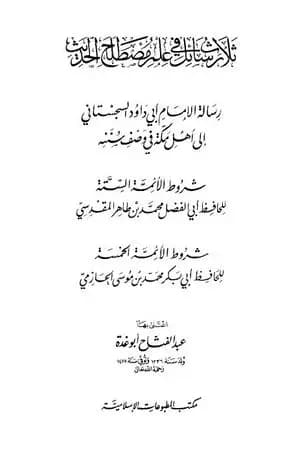 ثلاث رسائل في علم مصطلح الحديث
رسالة الإمام أبي داود السجستاني
إلى أهل مكة في وصف سننه
شروط الأئمة الستة
للحافظ أبي الفضل محمد بن طاهر المقدسي
شروط الأئمة الخمسة
للحافظ أبي بكر محمد بن موسى الحازمي
اعتنى بها
عبد الفتاح أبو غدة
ولد سنة ١٣٣٦ وتوفي سنة ١٤١٧
رحمه الله تعالى
مكتب المطبوعات الإسلامية